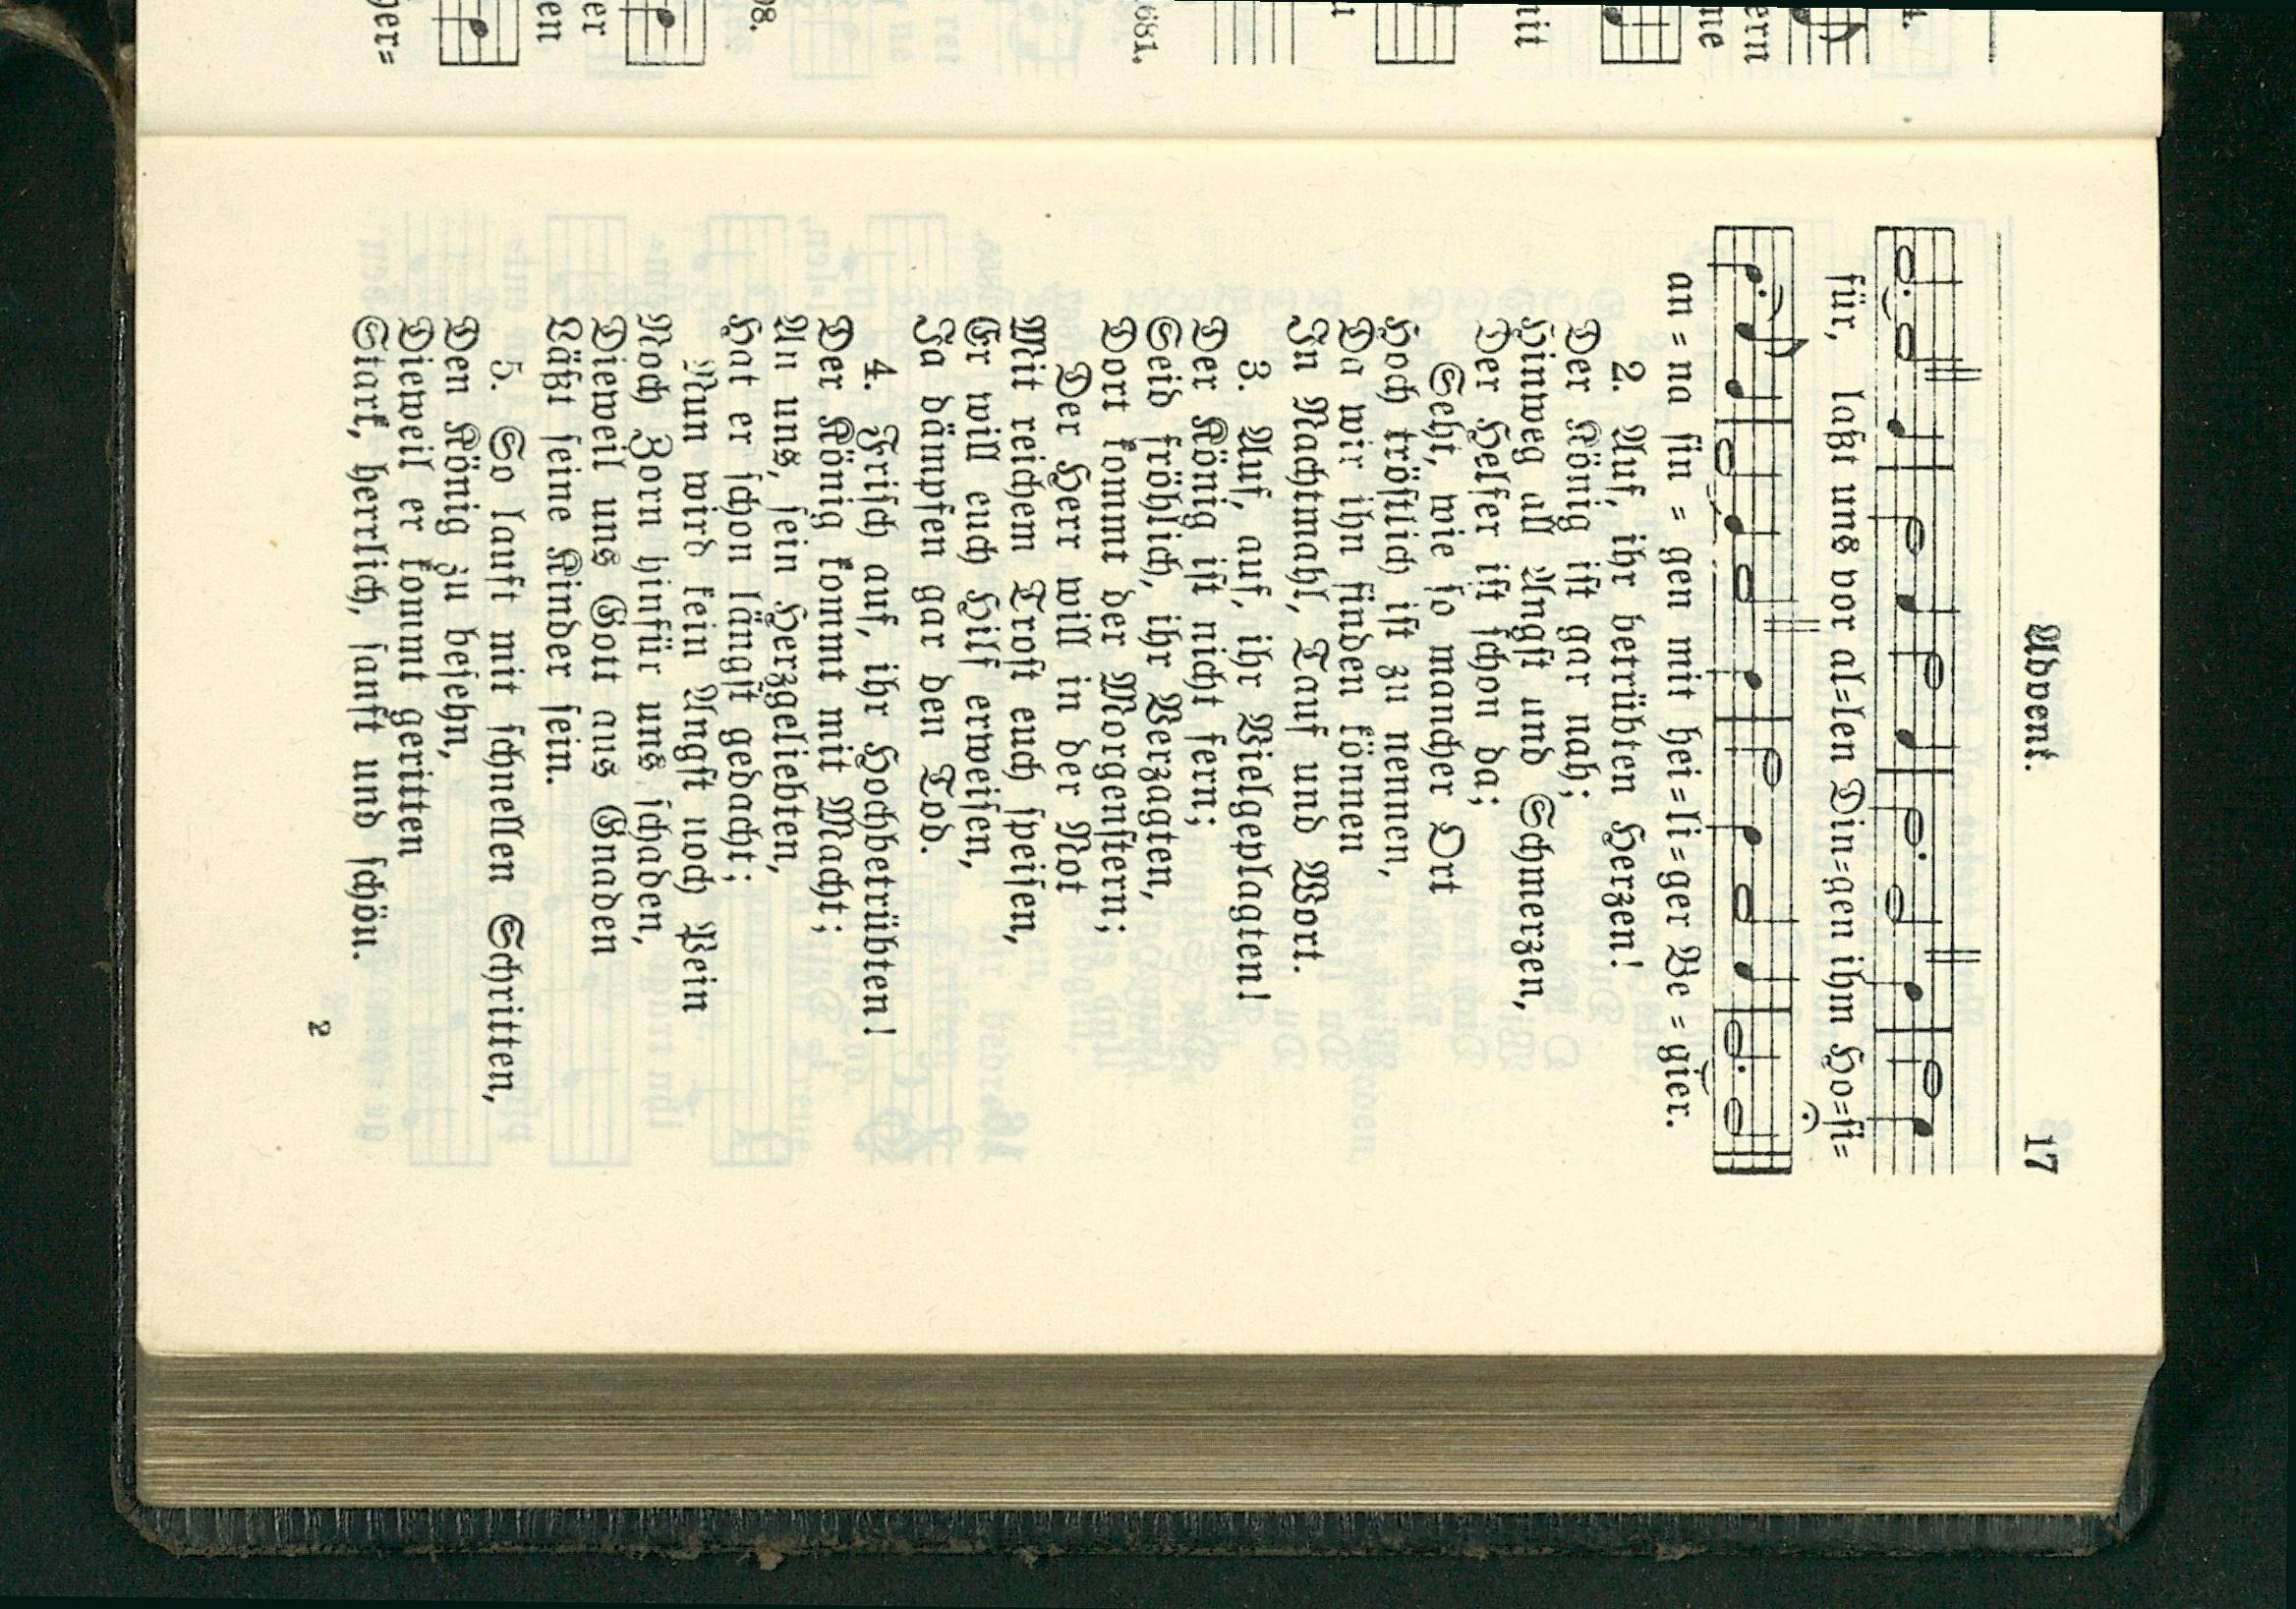 Advent. 17
für, laßt uns vor al=len Din=gen ihm Ho=si=
an = na sin = gen mit hei=li=ger Be = gier.
2. Auf, ihr betrübten Herzen!
Der König ist gar nah;
Hinweg all Angst und Schmerzen,
Der Helfer ist schon da;
Seht, wie so mancher Ort
Hoch tröstlich ist zu nennen,
Da wir ihn finden können
In Nachtmahl, Tauf und Wort.
3. Auf, auf, ihr Vielgeplagten!
Der König ist nicht fern;
Seid fröhlich, ihr Verzagten,
Dort kommt der Morgenstern;
Der Herr will in der Not
Mit reichem Trost euch speisen,
Er will euch Hilf erweisen,
Ja dämpfen gar den Tod.
4. Frisch auf, ihr Hochbetrübten!
Der König kommt mit Macht;
An uns, sein Herzgeliebten,
Hat er schon längst gedacht;
Nun wird kein Angst noch Pein
Noch Zorn hinfür uns schaden,
Dieweil uns Gott aus Gnaden
Läßt seine Kinder sein.
5. So lauft mit schnellen Schritten,
Den König zu besehn,
Dieweil er kommt geritten
Stark, herrlich, sanft und schön.
2